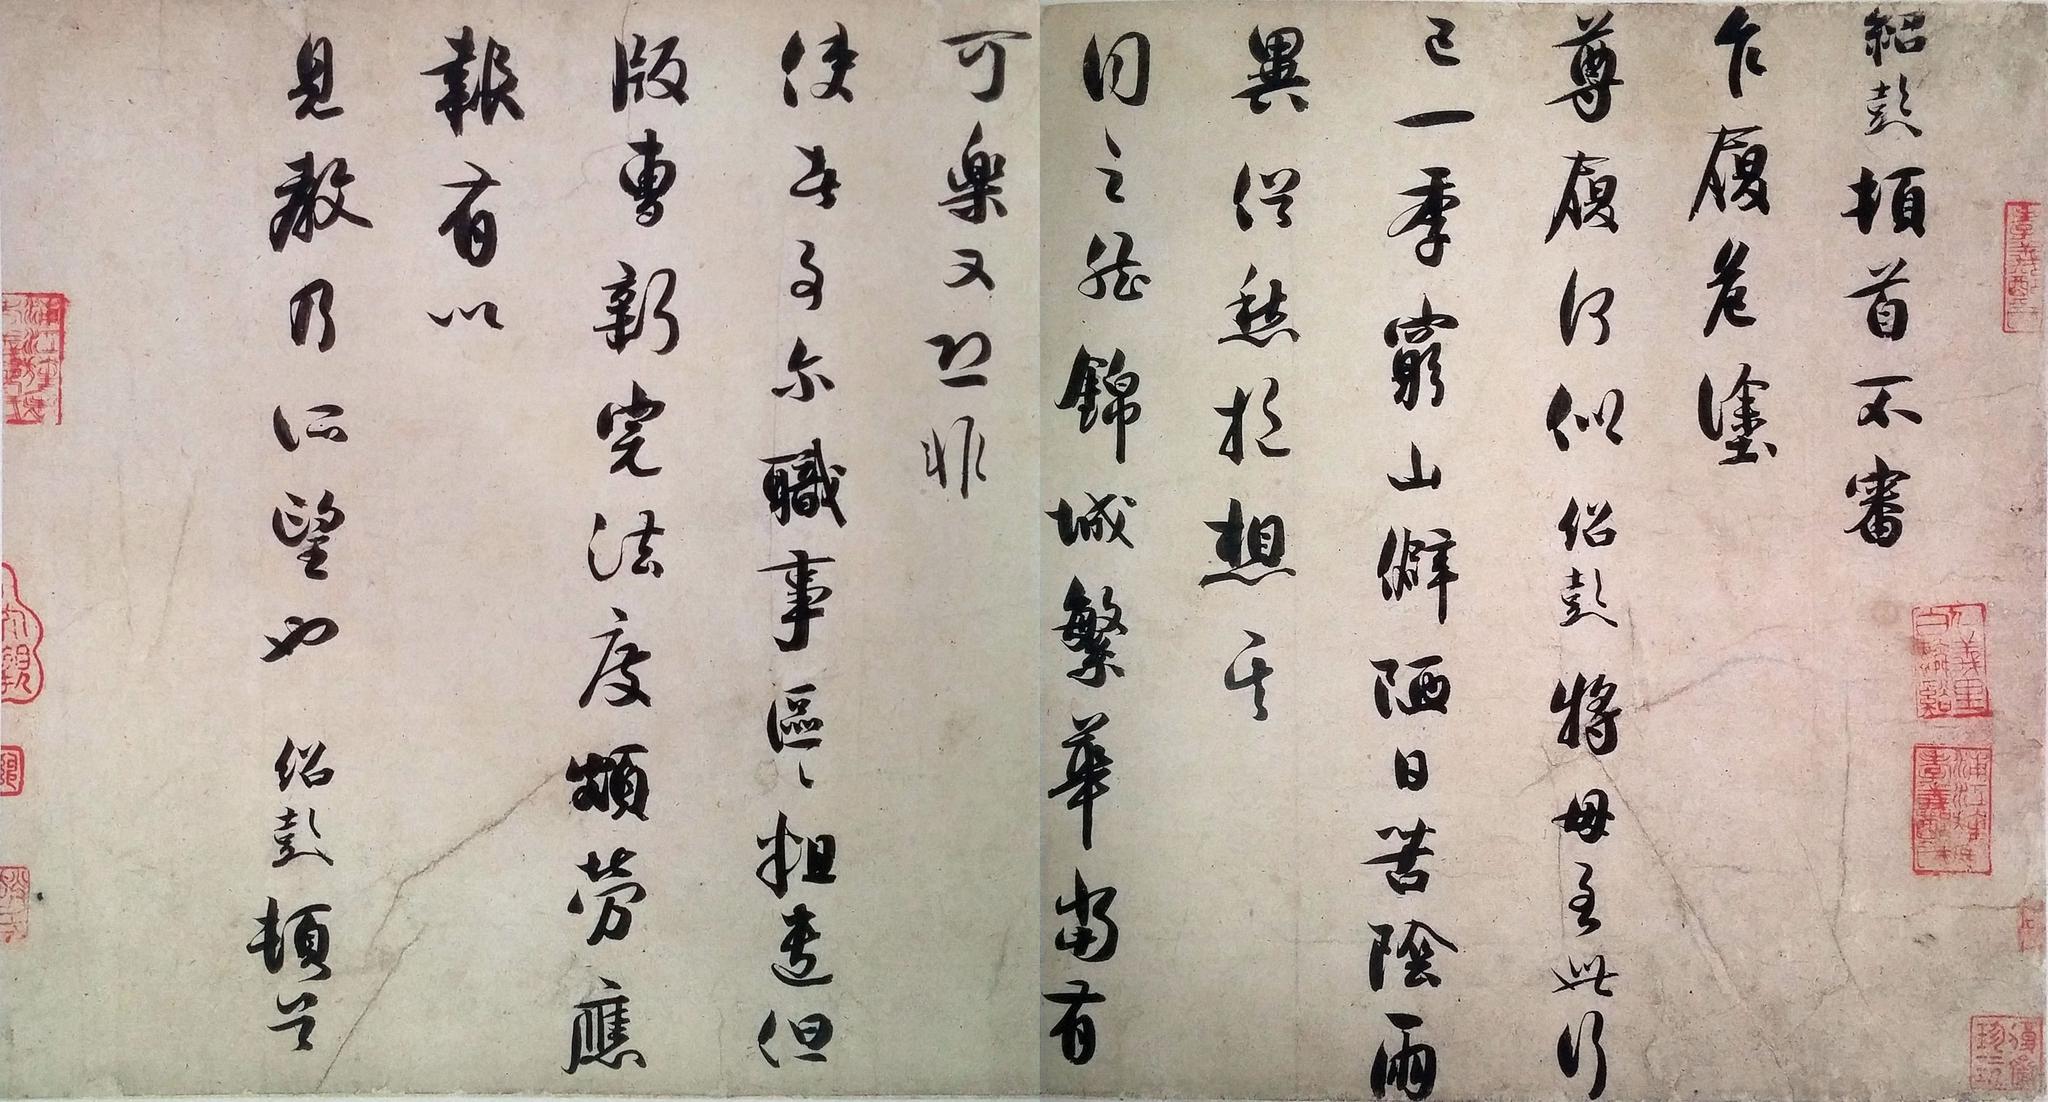 紹彭頓首不審
乍履危塗
尊履何似紹彭將母至此行
已一季窮山僻陋日苦陰雨
異俗愁於想其
同之然錦城繁華當有
可樂又恐非
使者事尔職事區〻粗遣但
版曹新完法度頗勞應
報有以
見教乃所望也 紹彭頓首